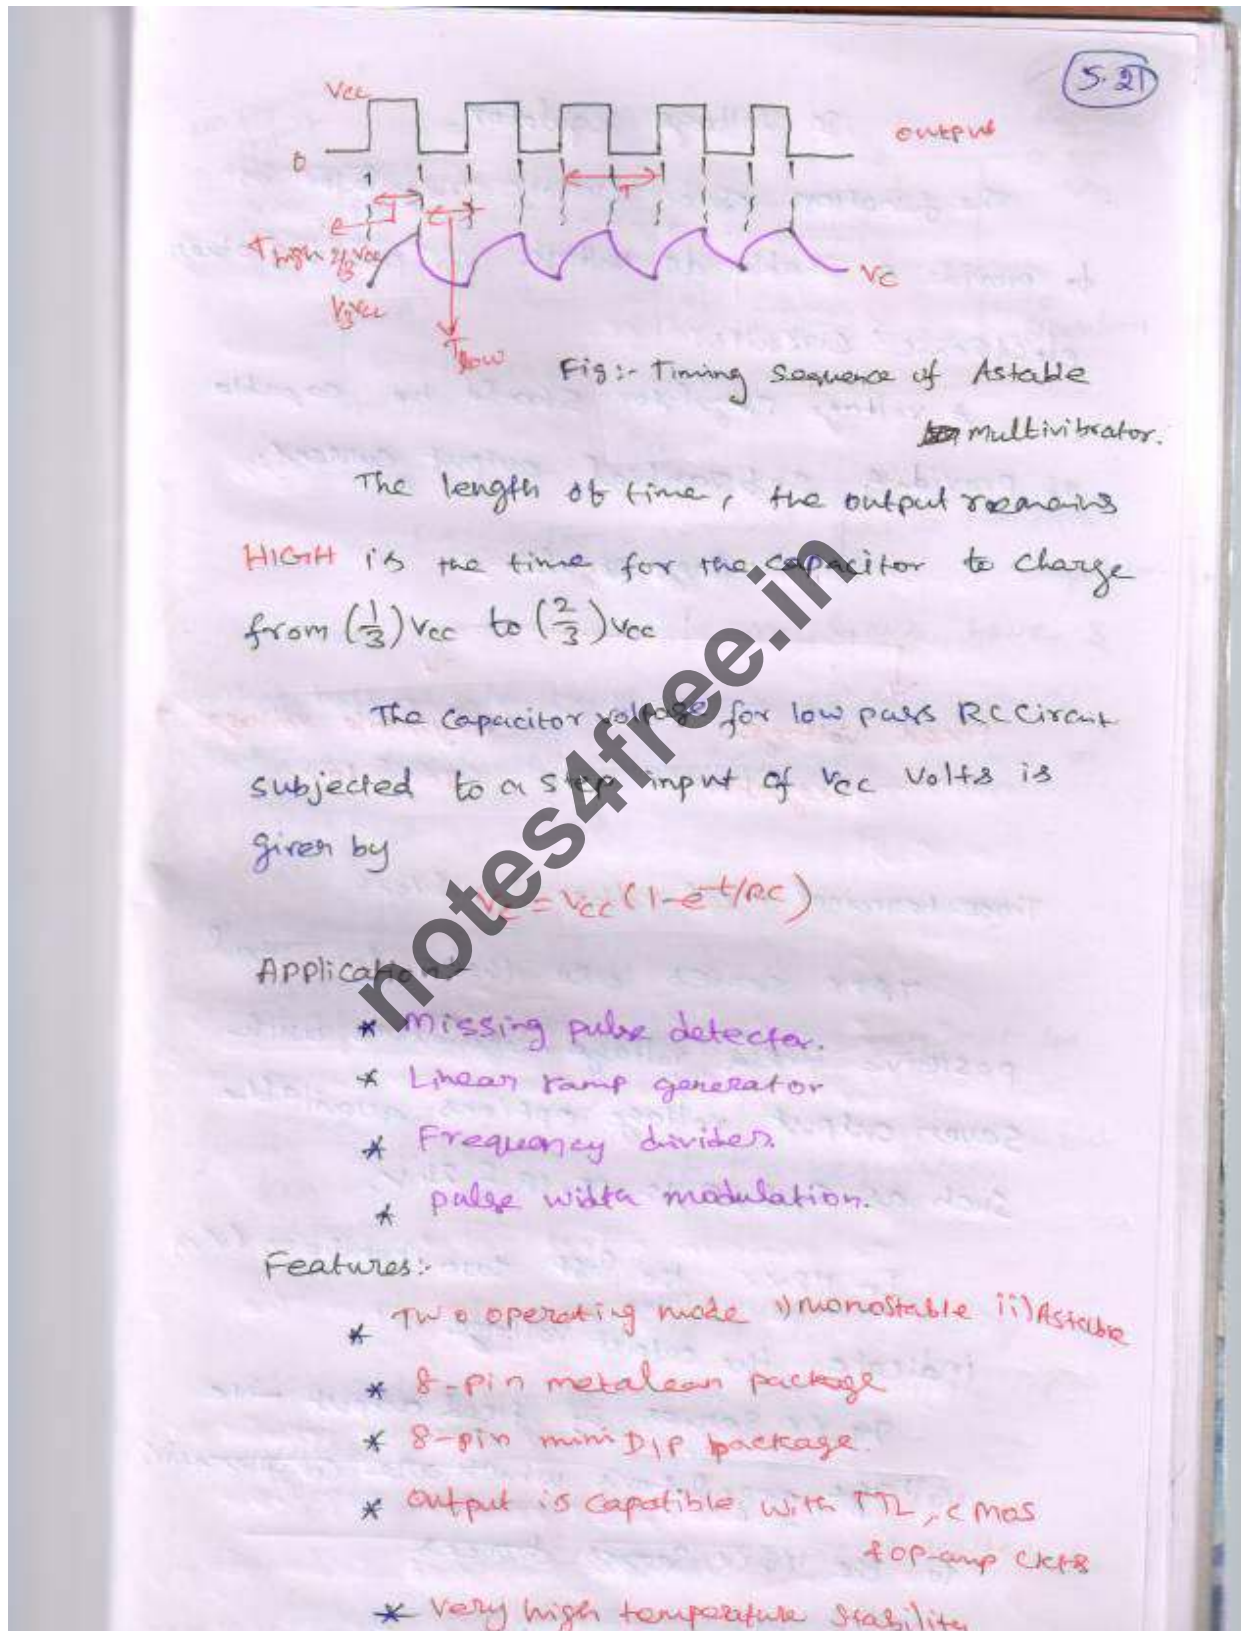 5.21
Vcc
0
output
T
Thigh 2/3 Vcc
1/3 Vcc
Vc
Tlow
Fig:- Timing Sequence of Astable
Multivibrator.
The length of time, the output remains
HIGH is the time for the capacitor to charge
from (1/3) Vcc to (2/3) Vcc
The capacitor voltage for low pass RC Circuit
subjected to a step input of Vcc Volts is
given by
Vc = Vcc (1-e^-t/RC)
Application:-
* Missing pulse detector.
* Linear ramp generator
* Frequency divider.
* pulse width modulation.
Features:-
* Two operating mode i) monostable ii) Astable
* 8-pin metalcan package
* 8-pin mini DIP package.
* output is capatible with TTL, CMOS
& OP-amp ckts
* Very high temperature stability
notes4free.in